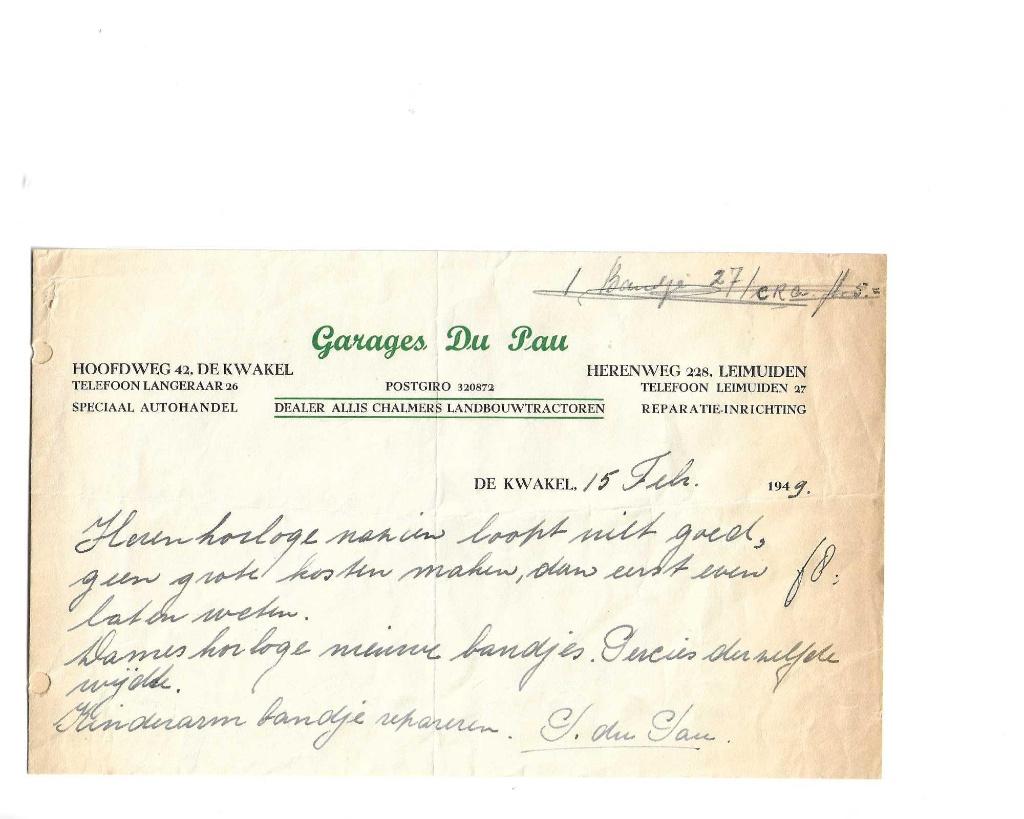 1 Bandje 27/ CRG f 5.=
Garages Du Pau
HOOFDWEG 42, DE KWAKEL
HERENWEG 228, LEIMUIDEN
TELEFOON LANGERAAR 26
POSTGIRO 320872
TELEFOON LEIMUIDEN 27
SPECIAAL AUTOHANDEL
DEALER ALLIS CHALMERS LANDBOUWTRACTOREN
REPARATIE-INRICHTING
DE KWAKEL, 15 Feb. 1949.
Heren horloge nazien loopt niet goed,
geen grote kosten maken, dan eerst even f 8:
laten weten.
Dames horloge nieuwe bandjes. Precies derzelfde
wijdte.
Kinderarm bandje repareren. S. du Pau.